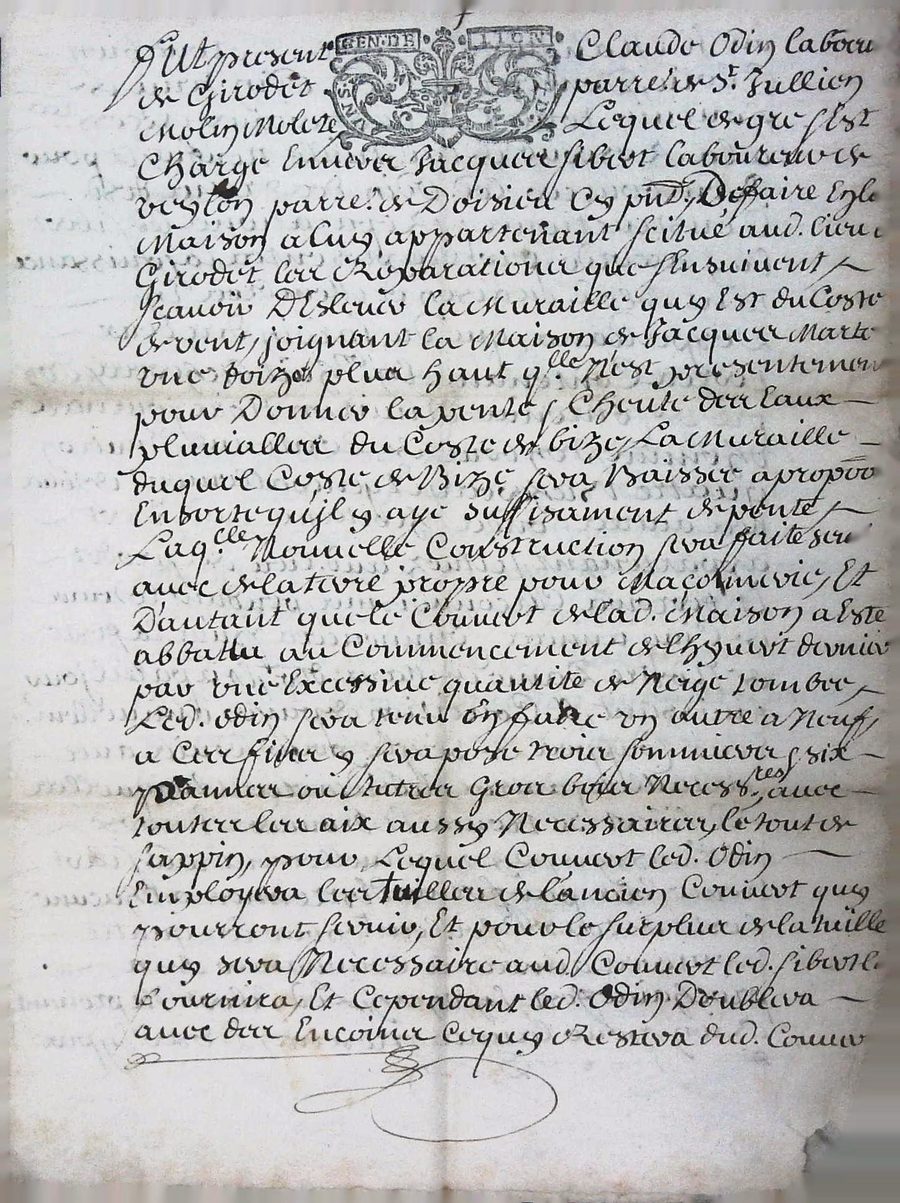 GEN. DE LION
Fut present Claude Odin labour
de Girodet parre. de St. Jullien
Molin Molete Lequel de gre sEst
Charge Enuers Jacques sibert laboureur de
veylon parre. de Doisieu Cy pnt., De faire En la
Maison a luy appartenant scitué aud. lieu
Girodet les Reparations que sEnsuiuent
Scauoir DEsleuer la Muraille quy Est du Coste
de vent, joignant la Maison de Jacques Marte
vne toize plus haut qlle N'est presentement
pour Donner la pente, Cheute des Eaux
pluuialles du Coste de bize, La Muraille
duquel Coste de Bize sera Baissée a propoo
En sorte qu'Jl y aye Suffisament de pente,
Laqlle Nouuelle Construction sera faite
auec de la terre propre pour Maçonnerie, Et
D'autant que le Couuert de lad. Maison a Esté
abbattu au Commencement de Lhyuert dernier
par vne Excessiue quantite de Neige tombee,
Led. Odin sera tenu En faire vn autre a Neuf,
a Ces fins y sera posé trois sommiers, six
pannes ou autres Gros bois Necesstes, auec
toutes les aix aussy Necessaires, le tout de
sappin, pour Lequel Couuert led. Odin
Employera les tuilles de l'ancien Couuert quy
pourront seruir, Et pour le surplus de la tuille
quy sera Necessaire aud. Couuert led. sibert
fournira, Et Cependant led. Odin Doublera
auec des Encoines Ce quy Restera dud. Couuer